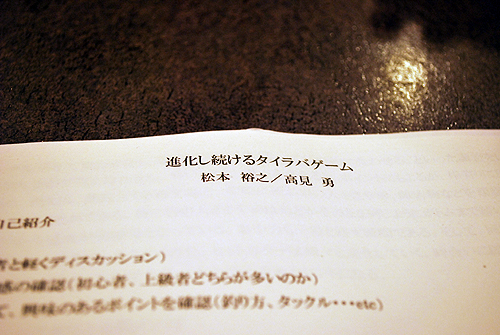 進化し続けるタイラバゲーム
松本 裕之／高見 勇
自己紹介
者と軽くディスカッション）
感の確認（初心者、上級者どちらが多いのか）
て、興味のあるポイントを確認（釣り方、タックル・・・etc）